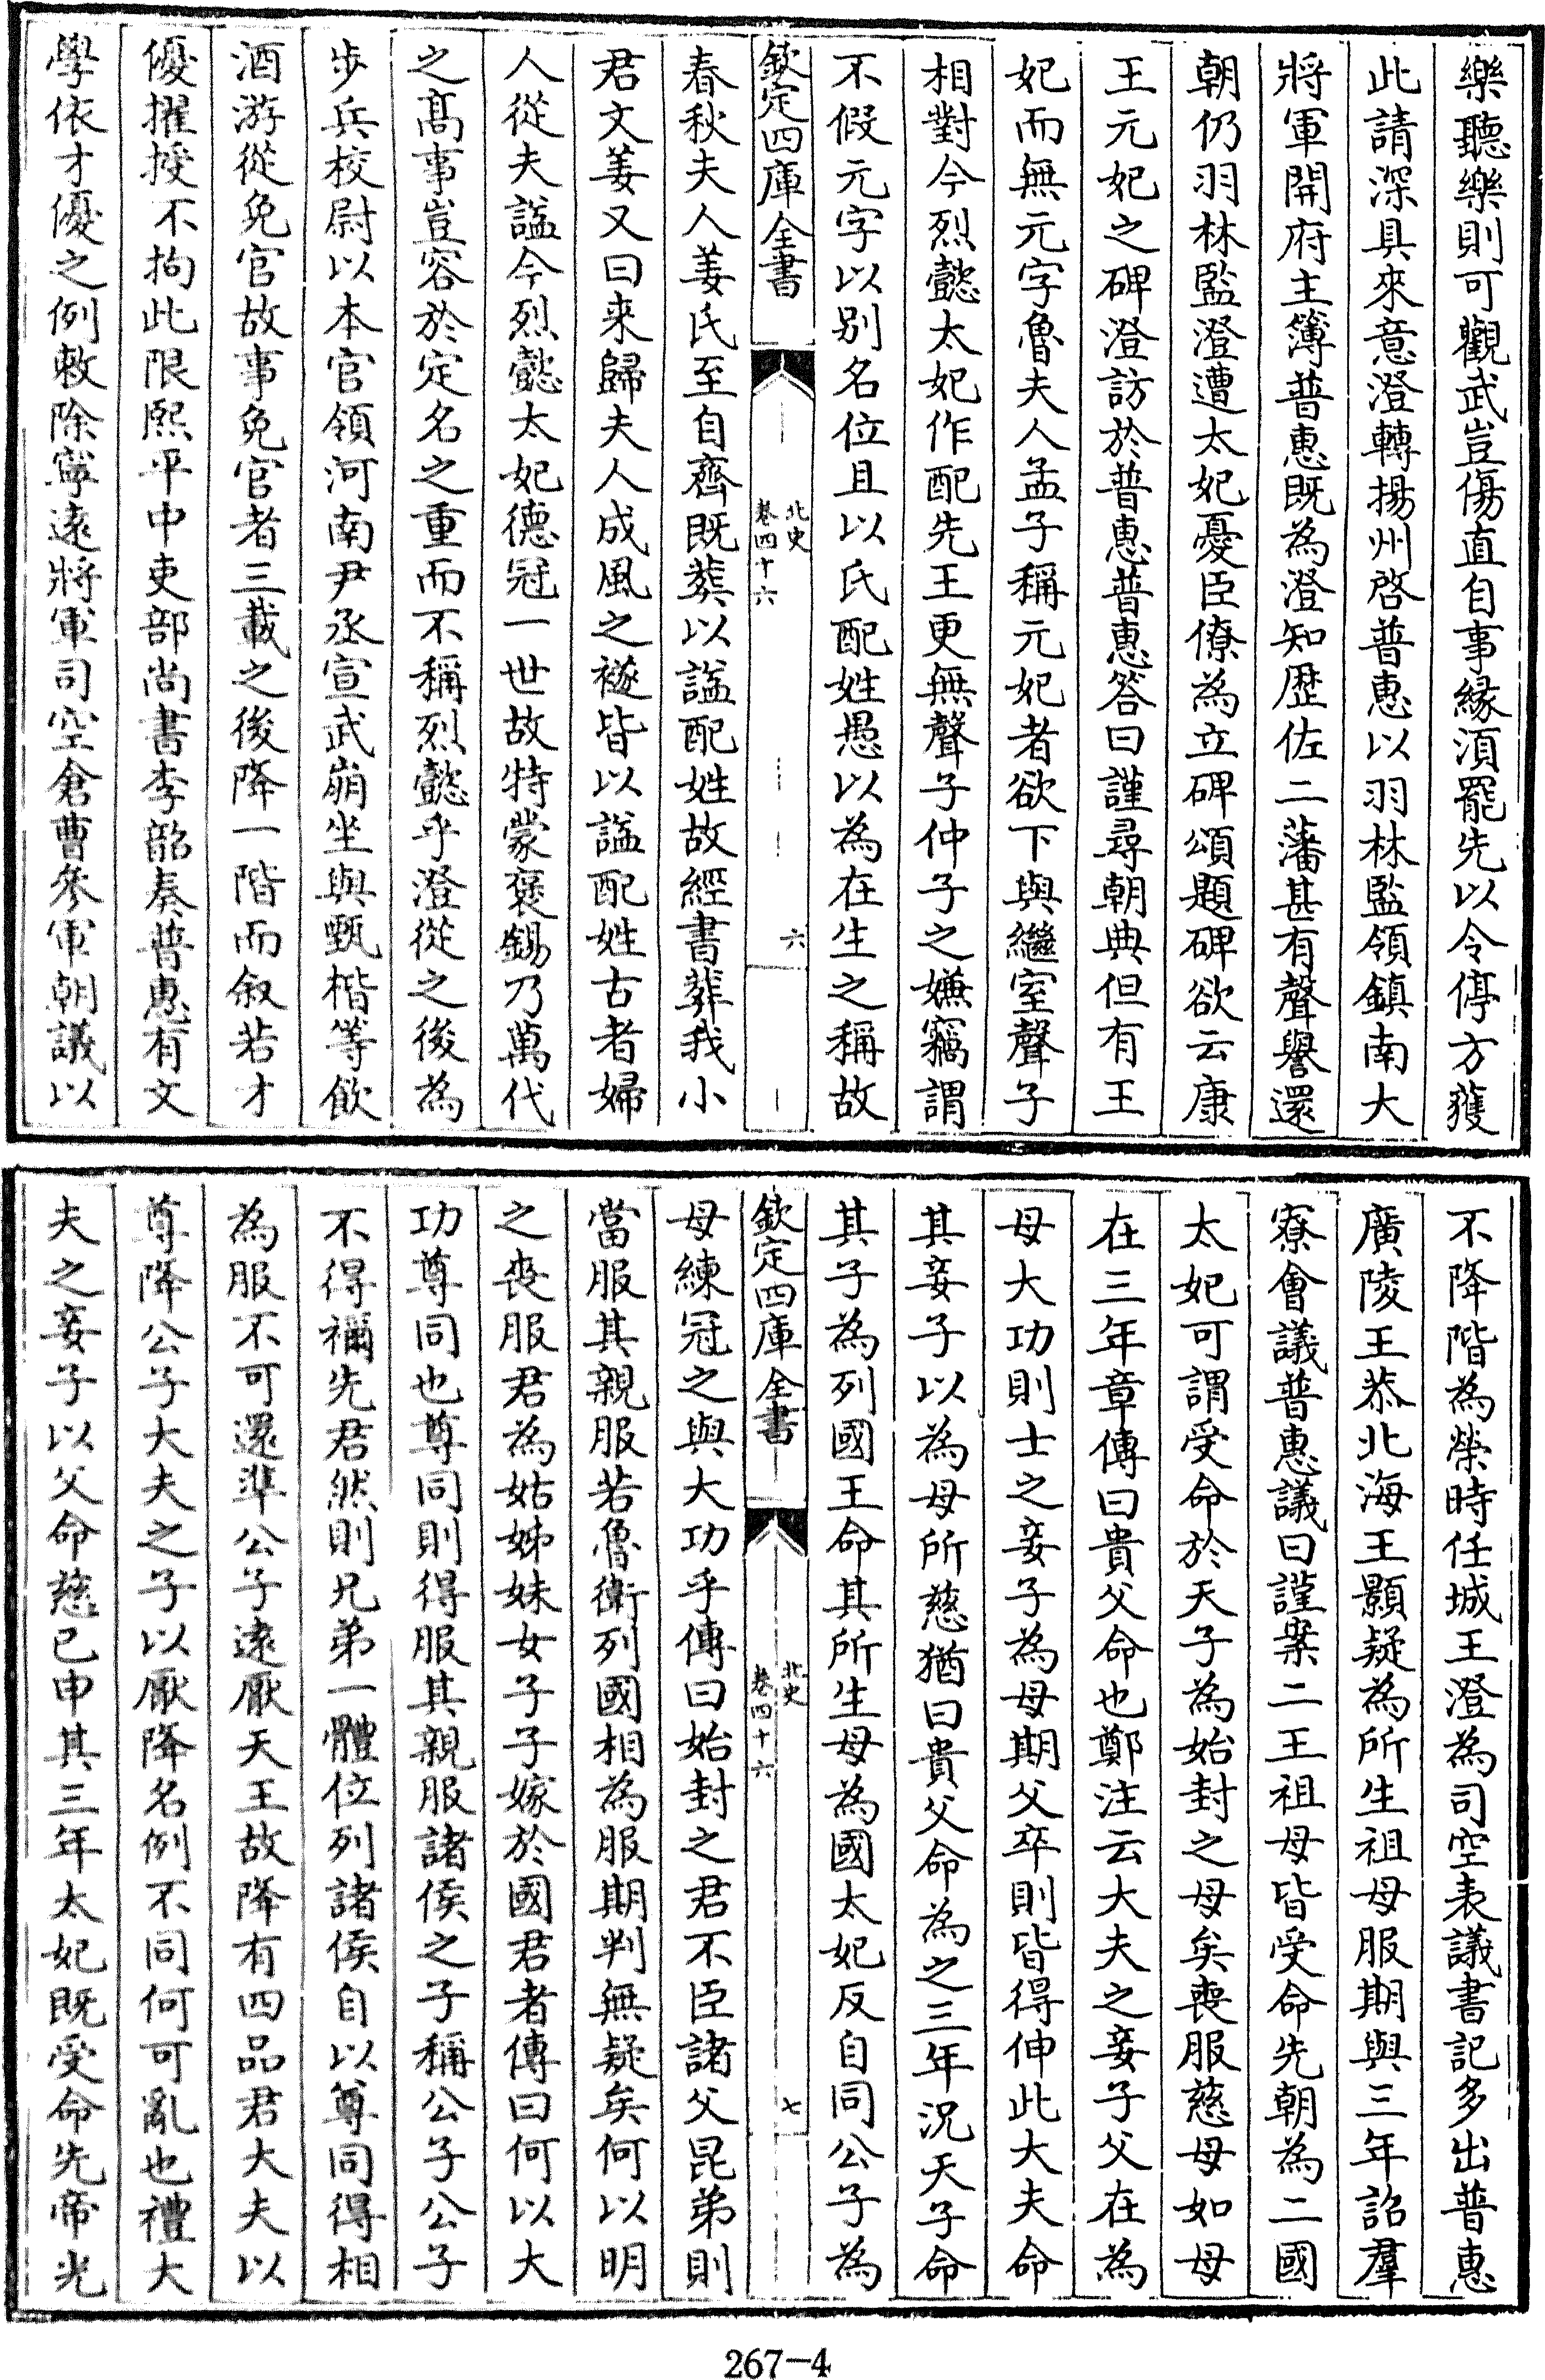 樂聽樂則可觀武豈傷直自事緣湏罷先以令停方獲
此請深具來意澄轉揚州啓普惠以羽林監領鎮南大
將軍開府主簿普惠既為澄知歴佐二藩甚有聲譽還
朝仍羽林監澄遭太妃憂臣僚為立碑頌題碑欲云康
王元妃之碑澄訪於普惠普惠答曰謹尋朝典但有王
妃而無元字魯夫人孟子稱元妃者欲下與繼室聲子
相對今烈懿太妃作配先王更無聲子仲子之嫌竊謂
不假元字以别名位且以氏配姓愚以為在生之稱故
欽定四庫全書
北史
卷四十六
六
春秋夫人姜氏至自齊既葬以諡配姓故經書葬我小
君文姜又曰来歸夫人成風之襚皆以諡配姓古者婦
人從夫諡今烈懿太妃德冠一世故特蒙褒錫乃萬代
之髙事豈容於定名之重而不稱烈懿乎澄從之後為
步兵校尉以本官領河南尹丞宣武崩坐與甄楷等飲
酒游從免官故事免官者三載之後降一階而叙若才
優擢授不拘此限熙平中吏部尚書李韶奏普惠有文
學依才優之例敕除寧逺將軍司空倉曹參軍朝議以
不降階為榮時任城王澄為司空表議書記多出普惠
廣陵王恭北海王顥疑為所生祖母服期與三年詔羣
寮會議普惠議曰謹案二王祖母皆受命先朝為二國
太妃可謂受命於天子為始封之母矣喪服慈母如母
在三年章傳曰貴父命也鄭注云大夫之妾子父在為
母大功則士之妾子為母期父卒則皆得伸此大夫命
其妾子以為母所慈猶曰貴父命為之三年況天子命
其子為列國王命其所生母為國太妃反自同公子為
欽定四庫全書
北史
卷四十六
七
母練冠之與大功乎傳曰始封之君不臣諸父昆弟則
當服其親服若魯衛列國相為服期判無疑矣何以明
之喪服君為姑姊妹女子子嫁於國君者傳曰何以大
功尊同也尊同則得服其親服諸侯之子稱公子公子
不得禰先君然則兄弟一體位列諸侯自以尊同得相
為服不可還準公子逺厭天王故降有四品君大夫以
尊降公子大夫之子以厭降名例不同何可亂也禮大
夫之妾子以父命慈已申其三年太妃既受命先帝光
267-4